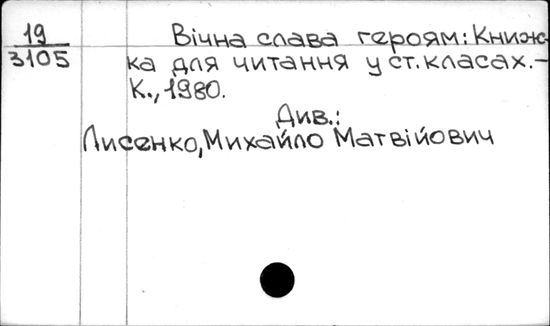 19
3105
Вічна слава героям: Книж-
ка для читання у ст. класах.-
К., 1980.
Див.:
Лисенко, Михайло Матвійович